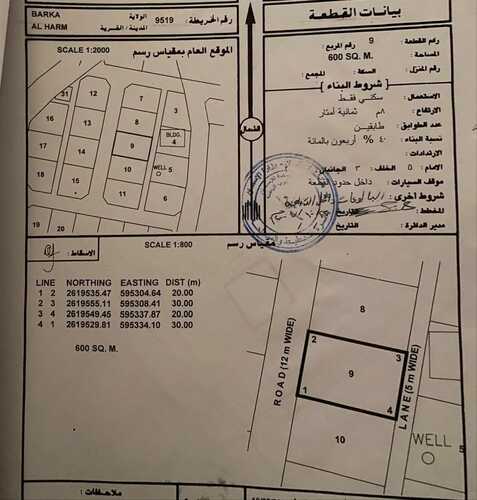 BARKA
AL HARM
الولاية
المدينة / القرية
رقم الخريطة 9519
بيانات القطعة
رقم القطعة 9 رقم المربع
المساحة 600 SQ. M.
رقم المنزل السكة المجمع
شروط البناء
الاستعمال سكني فقط
الارتفاع ٨م ثمانية أمتار
عدد الطوابق طابقين
نسبة البناء ٤٠ % أربعون بالمائة
الارتدادات
الامام ٥ الخلف ٣ الجانبان
موقف السيارات داخل حدود القطعة
شروط أخرى
المخطط التاريخ
مدير الدائرة التاريخ
الشمال
الموقع العام بمقياس رسم
SCALE 1:2000
31
16
15
14
13
12
11
10
19
20
7
8
9
10
3
BLDG.
4
WELL
5
6
مقياس رسم SCALE 1:800
الاسقاط
LINE NORTHING EASTING DIST (m)
1 2 2619535.47 595304.64 20.00
2 3 2619555.11 595308.41 30.00
3 4 2619549.45 595337.87 20.00
4 1 2619529.81 595334.10 30.00
600 SQ. M.
8
2
3
9
1
4
10
ROAD (12 m WIDE)
LANE (5 m WIDE)
WELL
5
ملاحظات